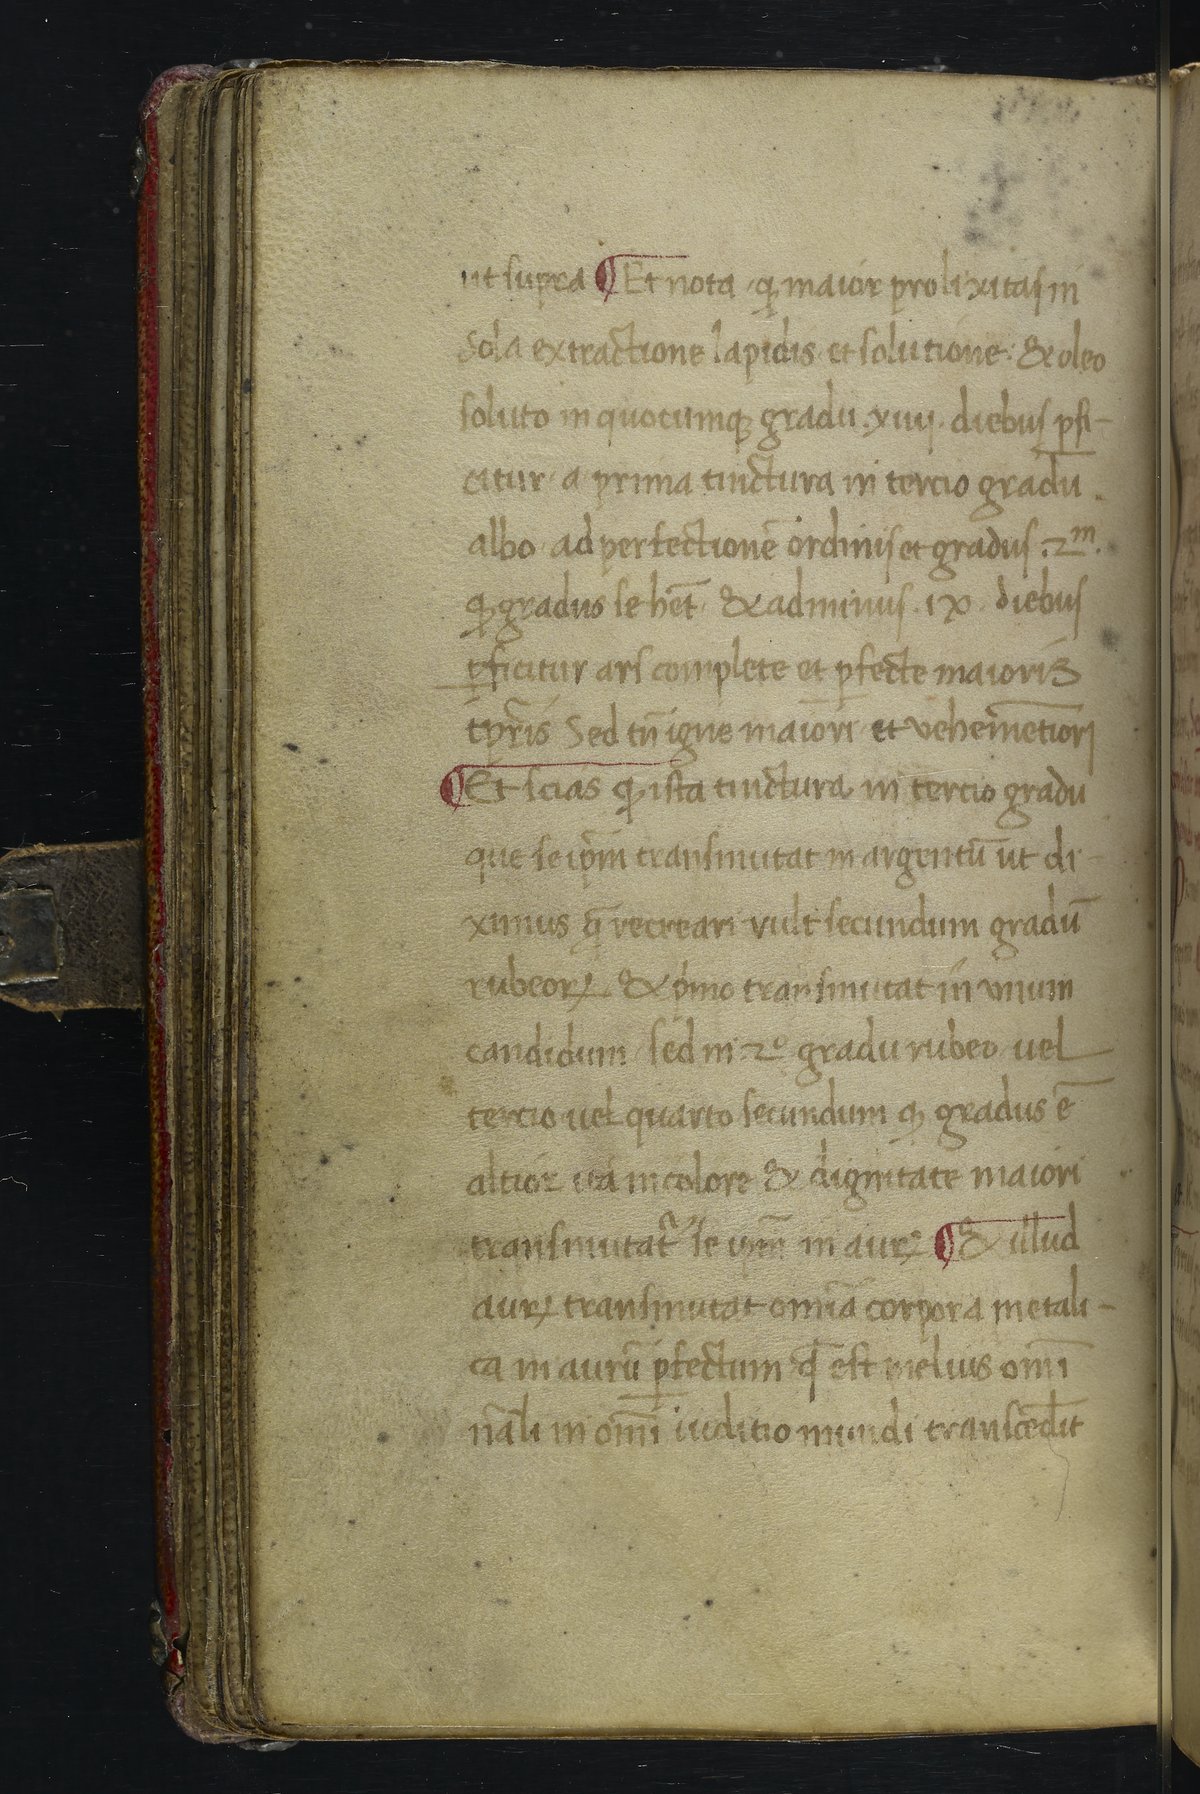 ut supra ¶ Et nota qꝫ maior prolixitas in
sola extractione lapidis et solutione & oleo
soluto in quocumqꝫ gradu .xiiij. diebus ꝑfi-
citur a prima tinctura in tercio gradu .
albo ad perfectionē ordinis et gradus .2ᵐ.
qꝫ gradus se hēt & adminus .ix. diebus
ꝑficitur ars complete et ꝑfecte maioris
Sed tn̄ igne maiori et vehemētiori
¶ Et scias qꝫ ista tinctura in tercio gradu
que se ip̄m transmutat in argentū ut di-
ximus recreari vult secundum gradū
rubeoꝝ & pͥmo transmutat in vnum
candidum sed in 2º gradu rubeo uel
tercio uel quarto secundum qꝫ gradus ē
altior ita in colore & dignitate maiori
transmutat se ip̄m in auꝝ ¶ & illud
auꝝ transmutat omīa corpora metali-
ca in aurū ꝑfectum qd̄ est melius omī
nāli in omī iuditio mundi transcēdit